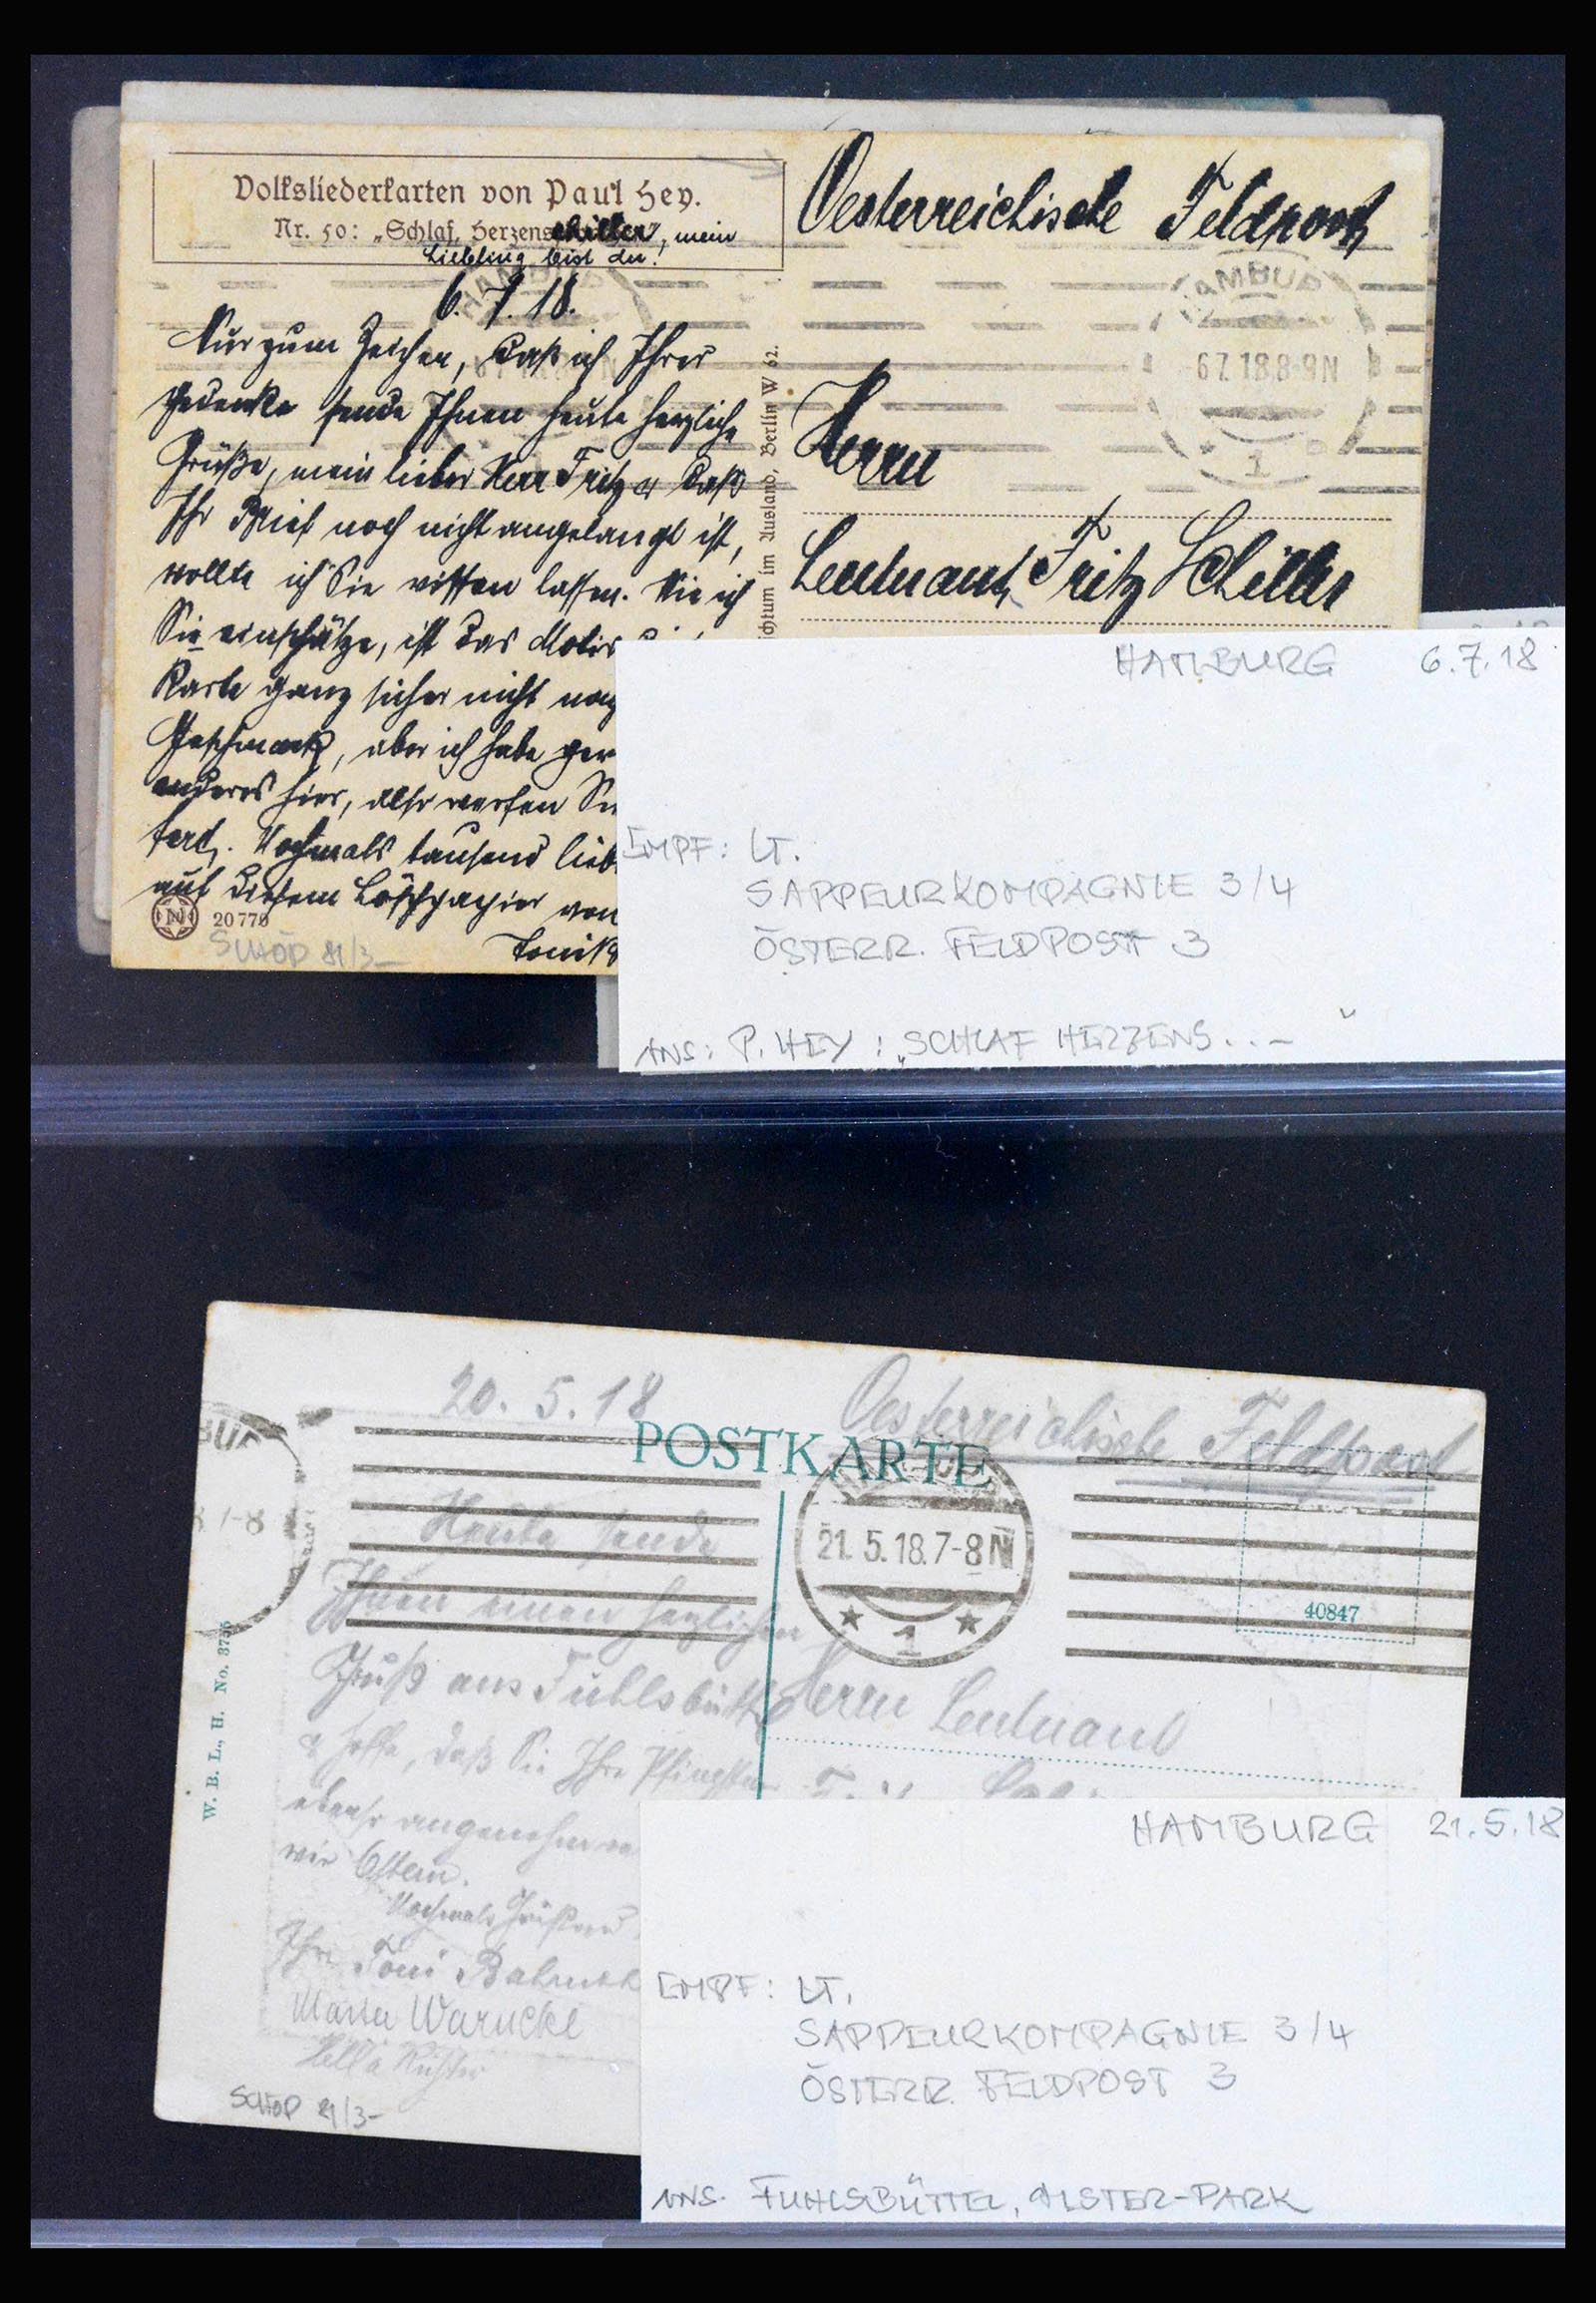 Volksliederkarten von Paul Hey.
Nr. 50: „Schlaf, Herzenschiller", mein
Liebling bist du!
Oesterreichische Feldpost
6.7.18.
HAMBUR
6.7.18.8-9N
1
Nur zum Zeichen, daß ich Ihrer
gedenke sende Ihnen heute herzliche
Grüße, mein lieber Herr Fritz u daß
Ihr Brief noch nicht angelangt ist,
wollte ich Sie wissen lassen. Wie ich
Sie einschätze, ist das Motiv
Karte ganz sicher nicht nach
Geschmack, aber ich habe gar
anderes hier, also werfen Sie
fort. Nochmals tausend lieb
auf diesem Löschpapier von
Toni
N 20770
SCHÖD 81/3-
chtum im Ausland, Berlin W 62.
Herrn
Leutnant Fritz Schiller
HAMBURG 6.7.18
EMPF: LT.
SAPPEURKOMPAGNIE 3/4
ÖSTERR. FELDPOST 3
ANS: P. HEY: „SCHLAF HERZENS...
20.5.18
Oesterreichische Feldpost
POSTKARTE
BUR
8 7-8
21.5.18.7-8N
1
40847
Heute sende
Ihnen einen herzlichen
Gruß aus Fuhlsbüttel
u hoffe, daß Sie Ihre Pfingsten
ebenso angenehm
wie Ostern.
Nochmals Grüßend
Ihre Toni
Warncke
Hella
SCHÖD 81/3-
W. B. L., H. No. 3755
Herrn Leutnant
HAMBURG 21.5.18
EMPF: LT.
SAPPEURKOMPAGNIE 3/4
ÖSTERR. FELDPOST 3
ANS. FUHLSBÜTTEL, ALSTER-PARK